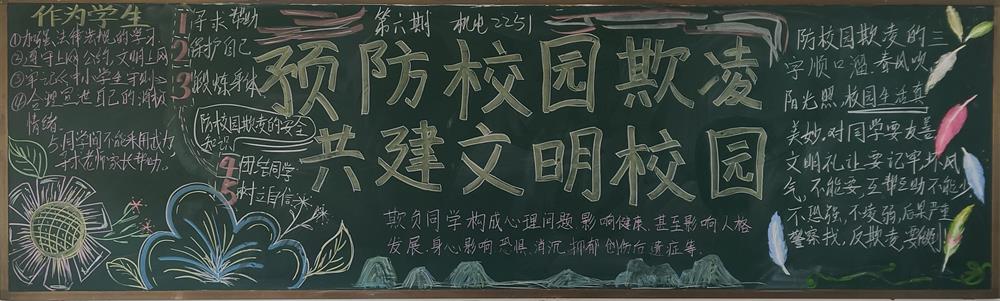 作为学生
①加强法律法规的学习
②遵守上网公约,文明上网
③牢记《中小学生守则》
④合理宣泄自己的消极
情绪
5.同学间不能采用武力
寻求老师家长帮助。
1寻求帮助
2保护自己
3锻炼身体
防校园欺凌的安全
知识
4团结同学
5树立自信
第六期 机电2251
预防校园欺凌
共建文明校园
欺负同学构成心理问题,影响健康,甚至影响人格
发展,身心影响,恐惧,消沉,抑郁,创伤后遗症等.
防校园欺凌的三
字顺口溜.春风吹,
阳光照,校园生活真
美妙.对同学要友善
文明礼让要记牢.坏风
气,不能要,互帮互助不能少
不恐强,不凌弱,后果严重
警察找,反欺凌,要做到